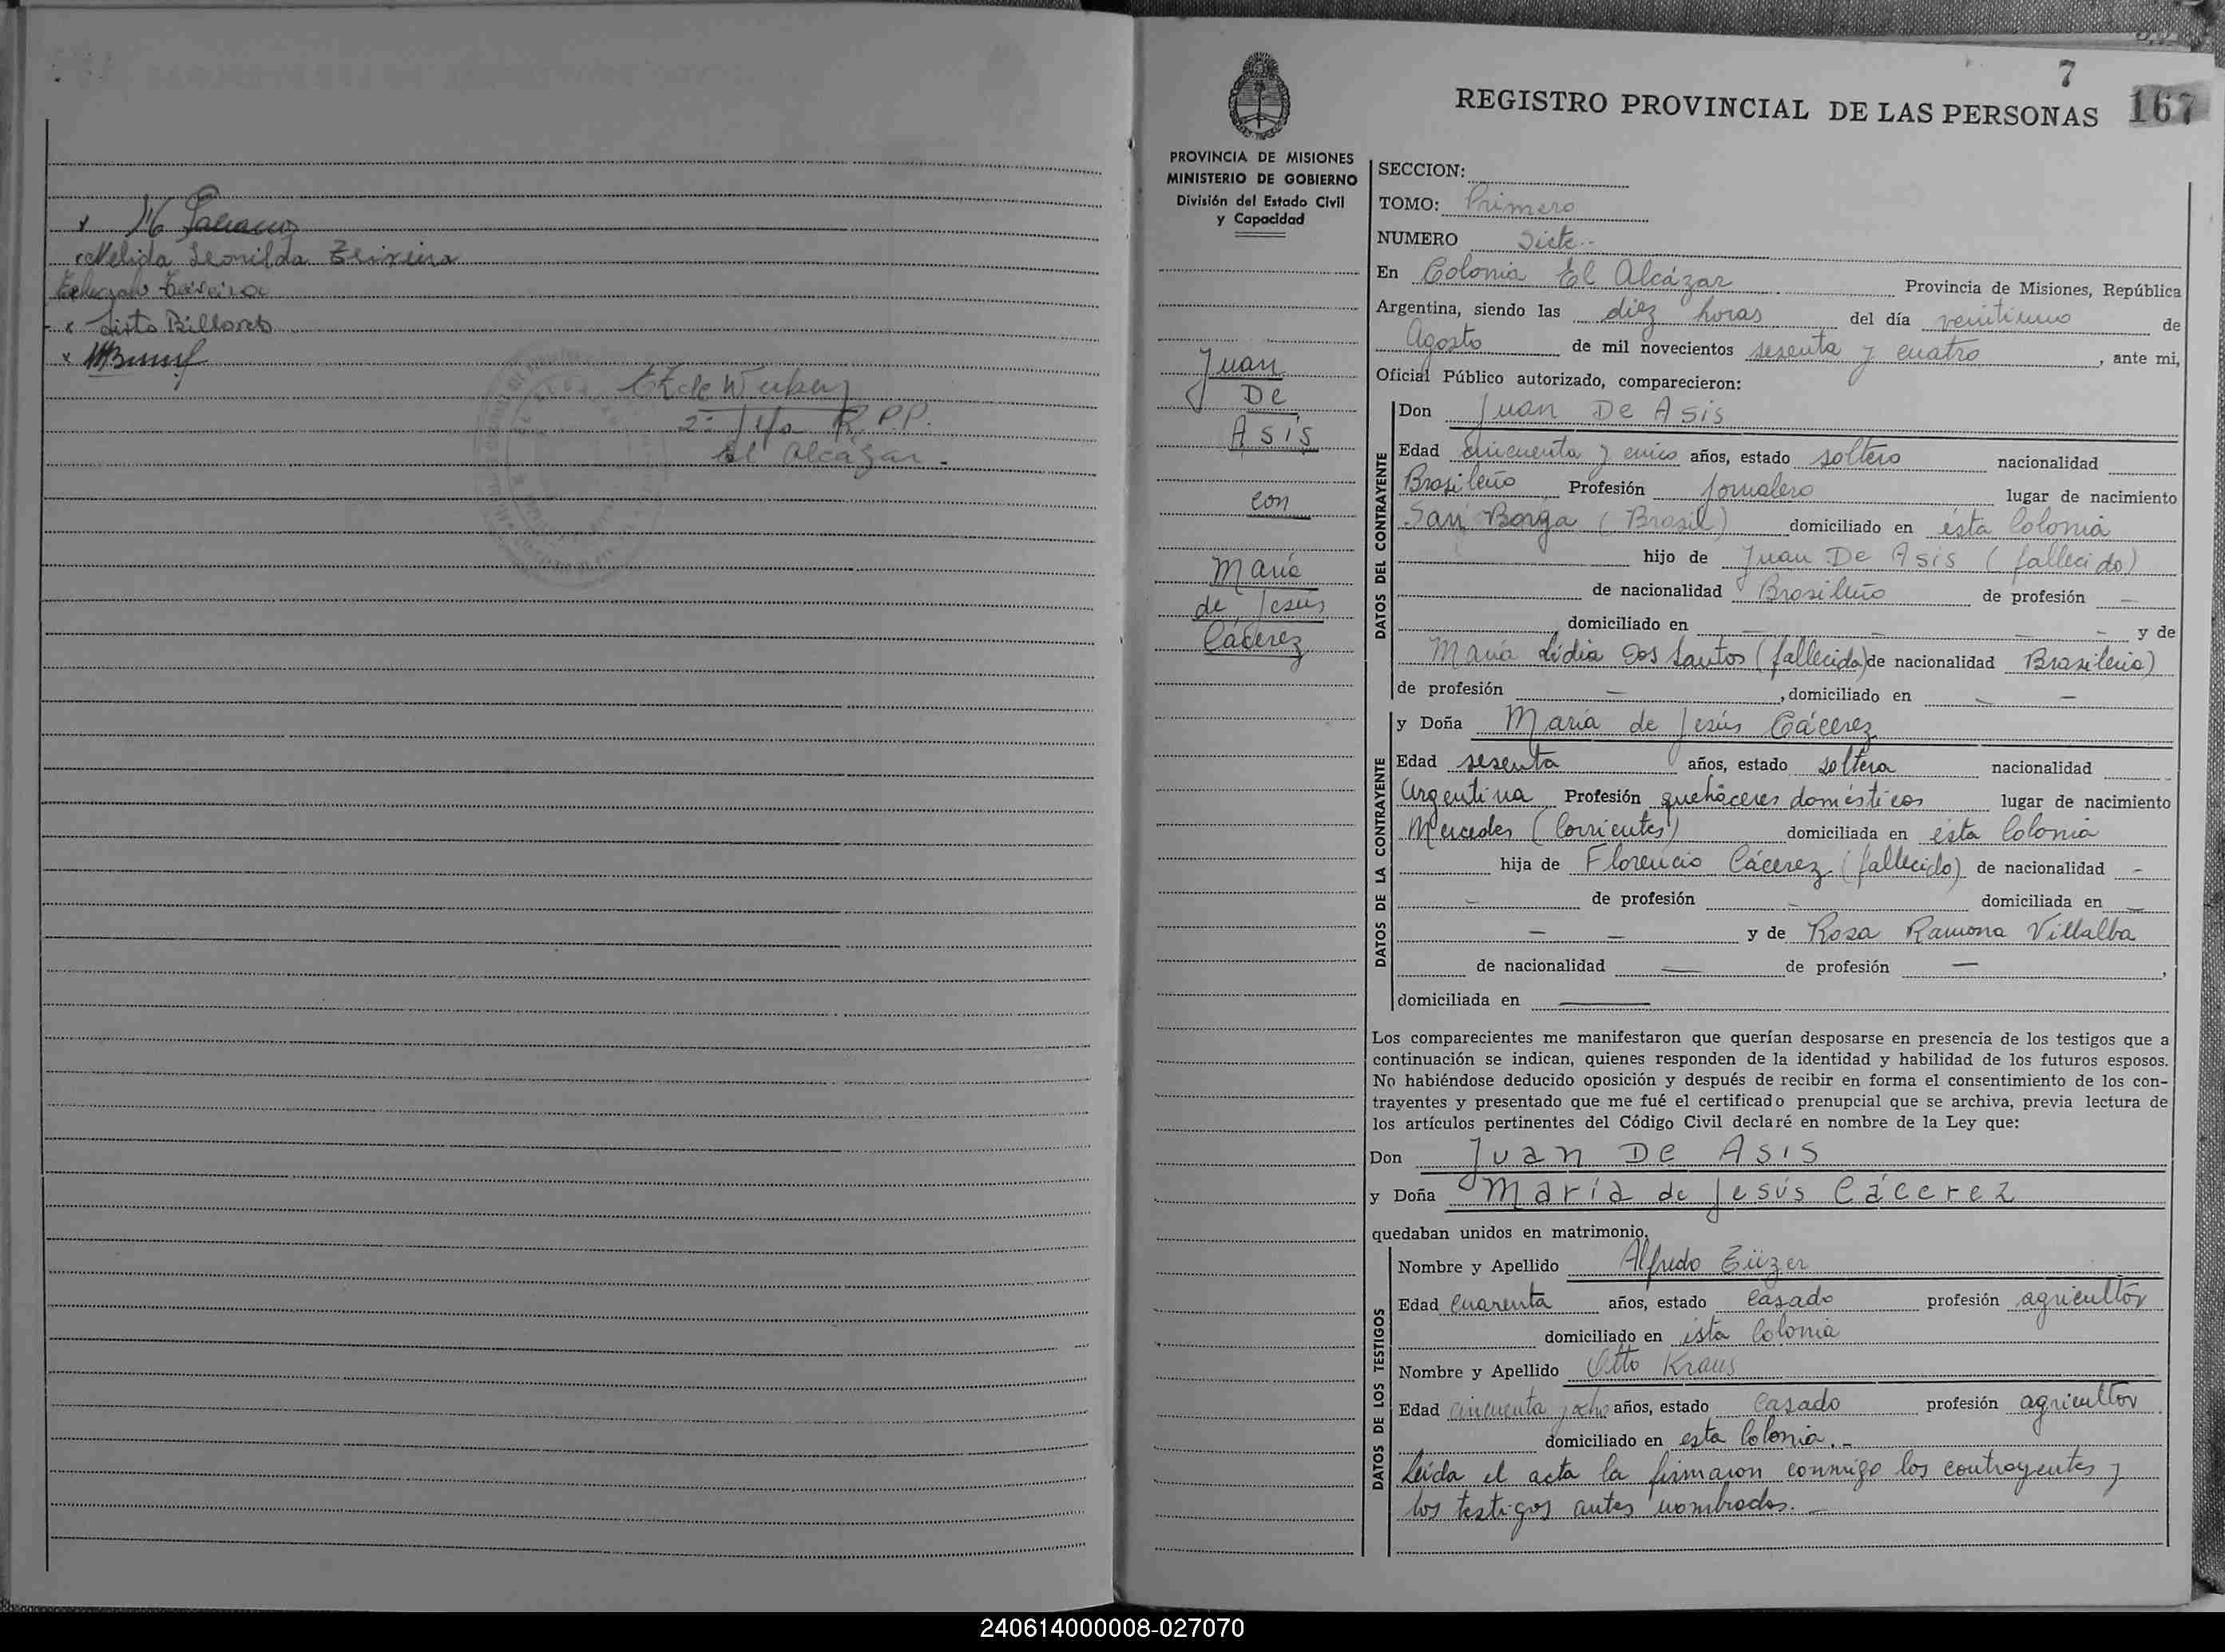 Nelida Leonilda
Sixto Billordo
2º Jefa R.P.P.
El Alcázar.-
7
REGISTRO PROVINCIAL DE LAS PERSONAS 167
PROVINCIA DE MISIONES
MINISTERIO DE GOBIERNO
División del Estado Civil
y Capacidad
Juan
De
Asis
con
María
de Jesus
Cácerez
SECCION:
TOMO: Primero
NUMERO Siete.-
En Colonia El Alcázar Provincia de Misiones, República
Argentina, siendo las diez horas del día veintiuno de
Agosto de mil novecientos sesenta y cuatro, ante mi,
Oficial Público autorizado, comparecieron:
DATOS DEL CONTRAYENTE
Don Juan De Asis
Edad cincuenta y cinco años, estado soltero nacionalidad
Brasileño Profesión Jornalero lugar de nacimiento
San Borga (Brasil) domiciliado en ésta Colonia
hijo de Juan De Asis (fallecido)
de nacionalidad Brasileño de profesión —
domiciliado en — — — — y de
María Lidia Dos Santos (fallecida) de nacionalidad Brasileña)
de profesión — , domiciliado en — —
DATOS DE LA CONTRAYENTE
y Doña María de Jesús Cácerez
Edad sesenta años, estado soltera nacionalidad
Argentina Profesión quehaceres domésticos lugar de nacimiento
Mercedes (Corrientes) domiciliada en ésta Colonia
hija de Florencio Cácerez (fallecido) de nacionalidad -
- de profesión - domiciliada en —
— — y de Rosa Ramona Villalba
de nacionalidad — de profesión — ,
domiciliada en —
Los comparecientes me manifestaron que querían desposarse en presencia de los testigos que a
continuación se indican, quienes responden de la identidad y habilidad de los futuros esposos.
No habiéndose deducido oposición y después de recibir en forma el consentimiento de los con-
trayentes y presentado que me fué el certificado prenupcial que se archiva, previa lectura de
los artículos pertinentes del Código Civil declaré en nombre de la Ley que:
Don Juan De Asis
y Doña María de Jesús Cácerez
quedaban unidos en matrimonio.
DATOS DE LOS TESTIGOS
Nombre y Apellido Alfredo Züzer
Edad Cuarenta años, estado Casado profesión agricultor
domiciliado en ésta Colonia
Nombre y Apellido Otto Kraus
Edad Cincuenta y ocho años, estado Casado profesión agricultor
domiciliado en esta Colonia.-
Leída el acta la firmaron conmigo los contrayentes y
los testigos antes nombrados.—
240614000008-027070